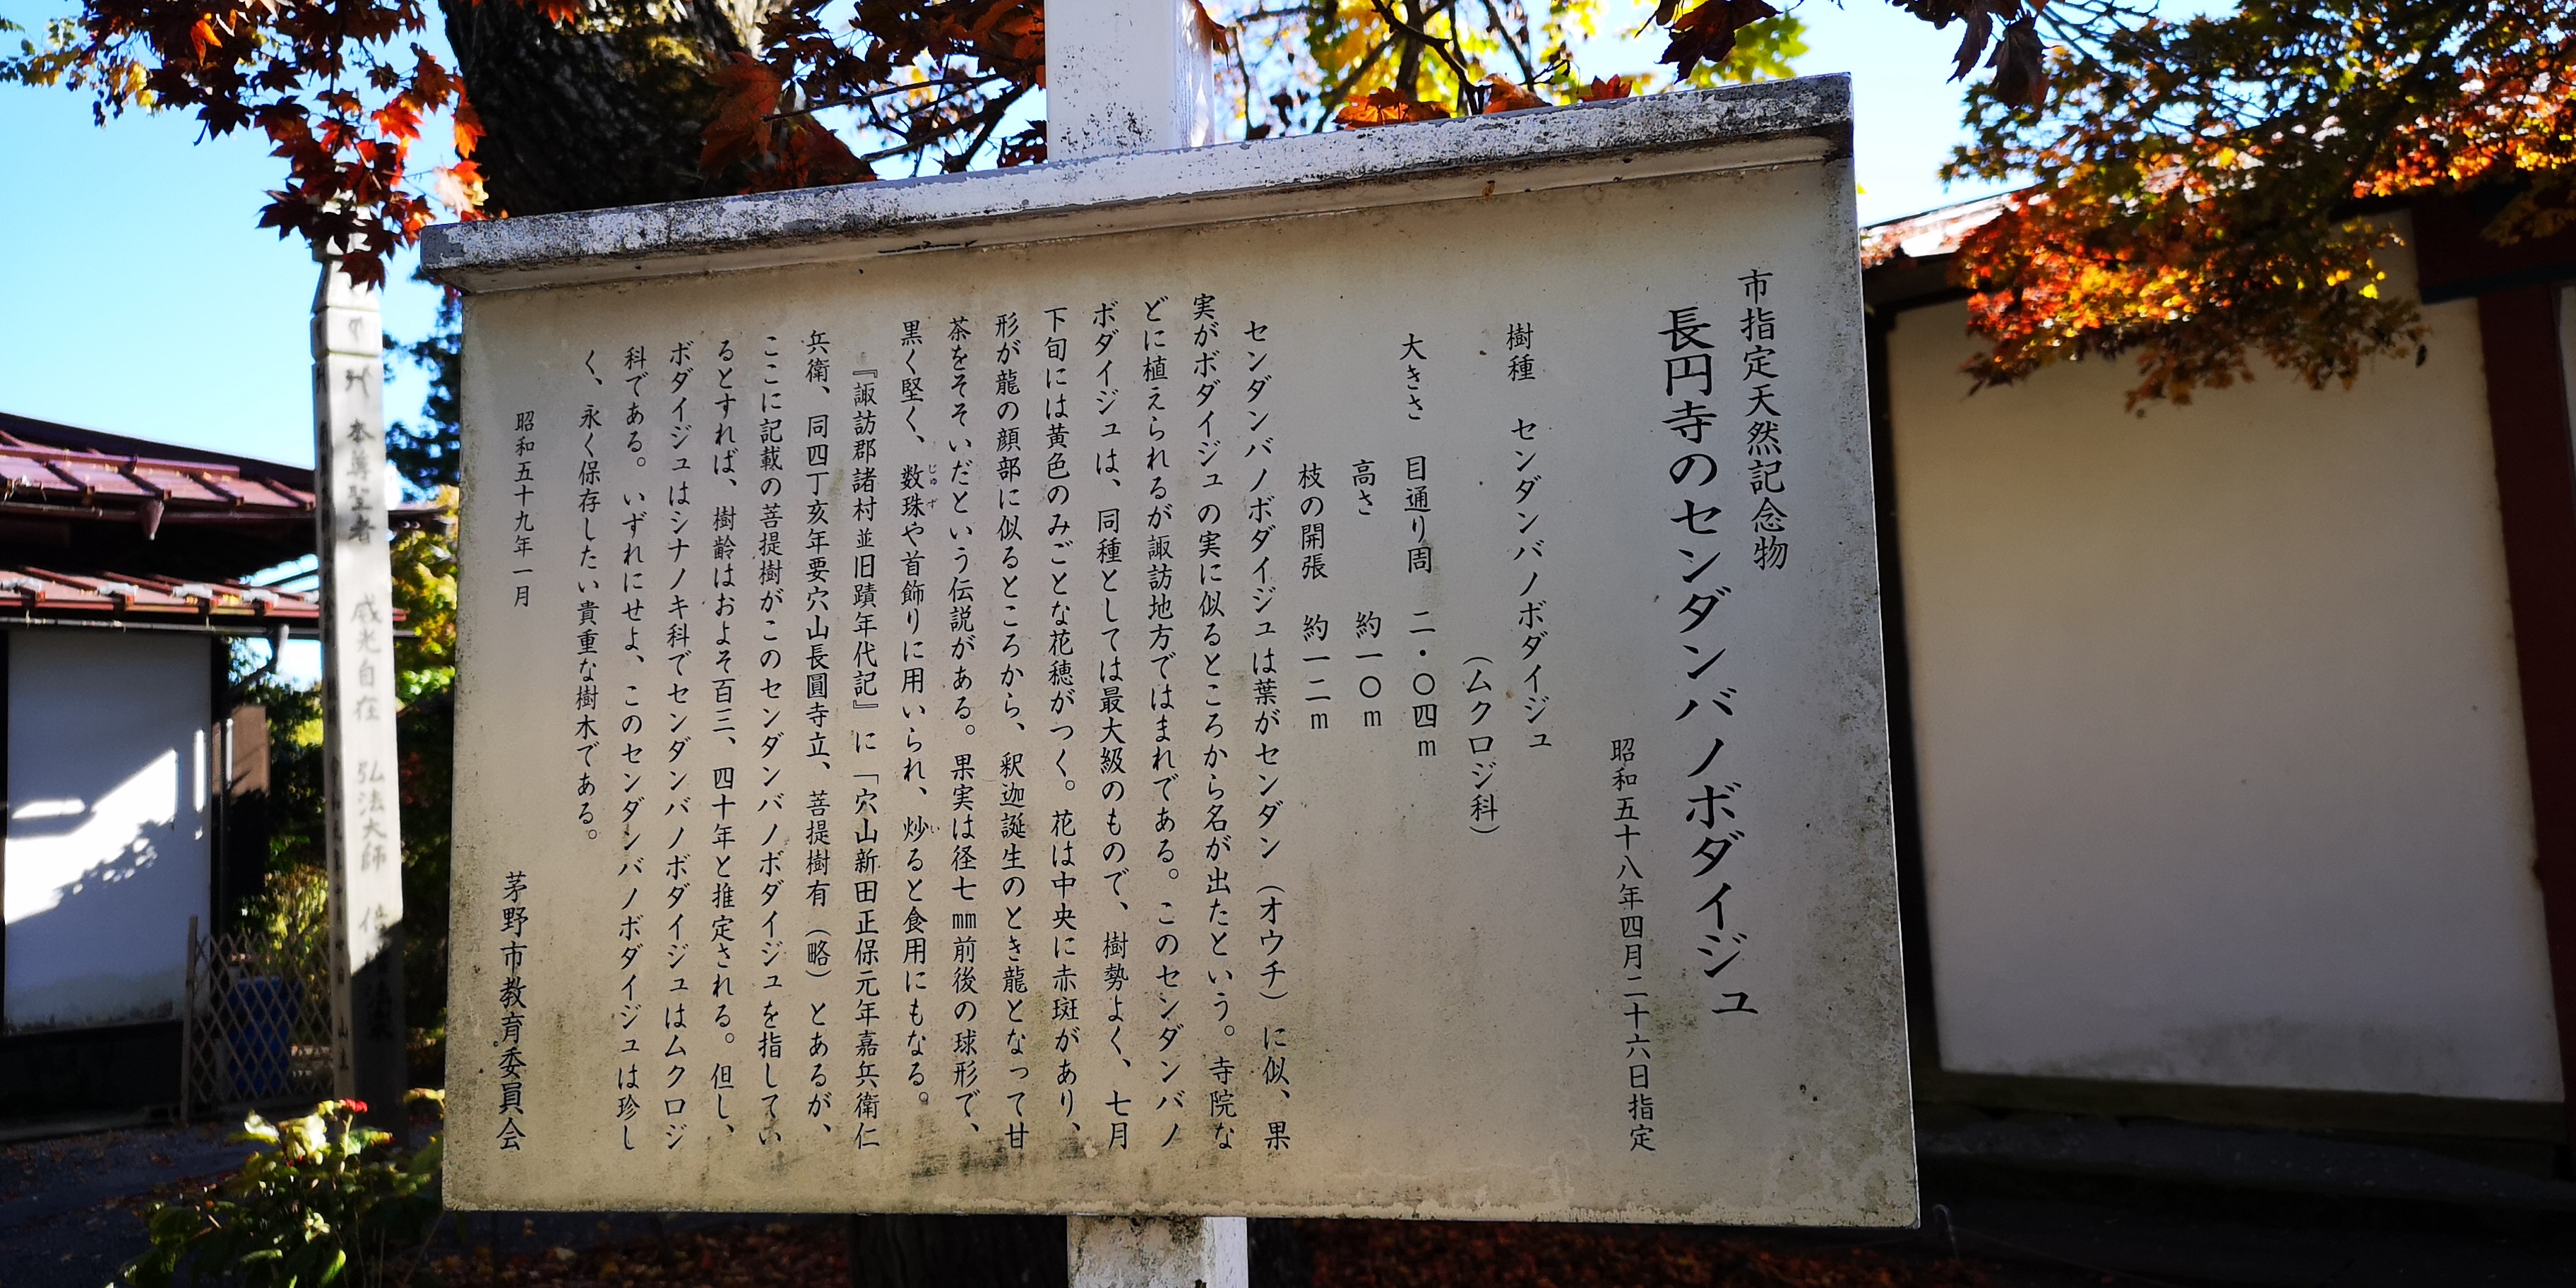 市指定天然記念物
長円寺のセンダンバノボダイジュ
昭和五十八年四月二十六日指定
樹種　センダンバノボダイジュ
（ムクロジ科）
大きさ　目通り周　二・〇四m
高さ　約一〇m
枝の開張　約一二m
センダンバノボダイジュは葉がセンダン（オウチ）に似、果
実がボダイジュの実に似るところから名が出たという。寺院な
どに植えられるが諏訪地方ではまれである。このセンダンバノ
ボダイジュは、同種としては最大級のもので、樹勢よく、七月
下旬には黄色のみごとな花穂がつく。花は中央に赤斑があり、
形が龍の顔部に似るところから、釈迦誕生のとき龍となって甘
茶をそそいだという伝説がある。果実は径七㎜前後の球形で、
黒く堅く、数珠や首飾りに用いられ、炒ると食用にもなる。
じゅず
い
『諏訪郡諸村並旧蹟年代記』に「穴山新田正保元年嘉兵衛仁
兵衛、同四丁亥年要穴山長圓寺立、菩提樹有（略）とあるが、
ここに記載の菩提樹がこのセンダンバノボダイジュを指してい
るとすれば、樹齢はおよそ百三、四十年と推定される。但し、
ボダイジュはシナノキ科でセンダンバノボダイジュはムクロジ
科である。いずれにせよ、このセンダンバノボダイジュは珍し
く、永く保存したい貴重な樹木である。
昭和五十九年一月
茅野市教育委員会
本尊聖者　威光自在　弘法大師　倍